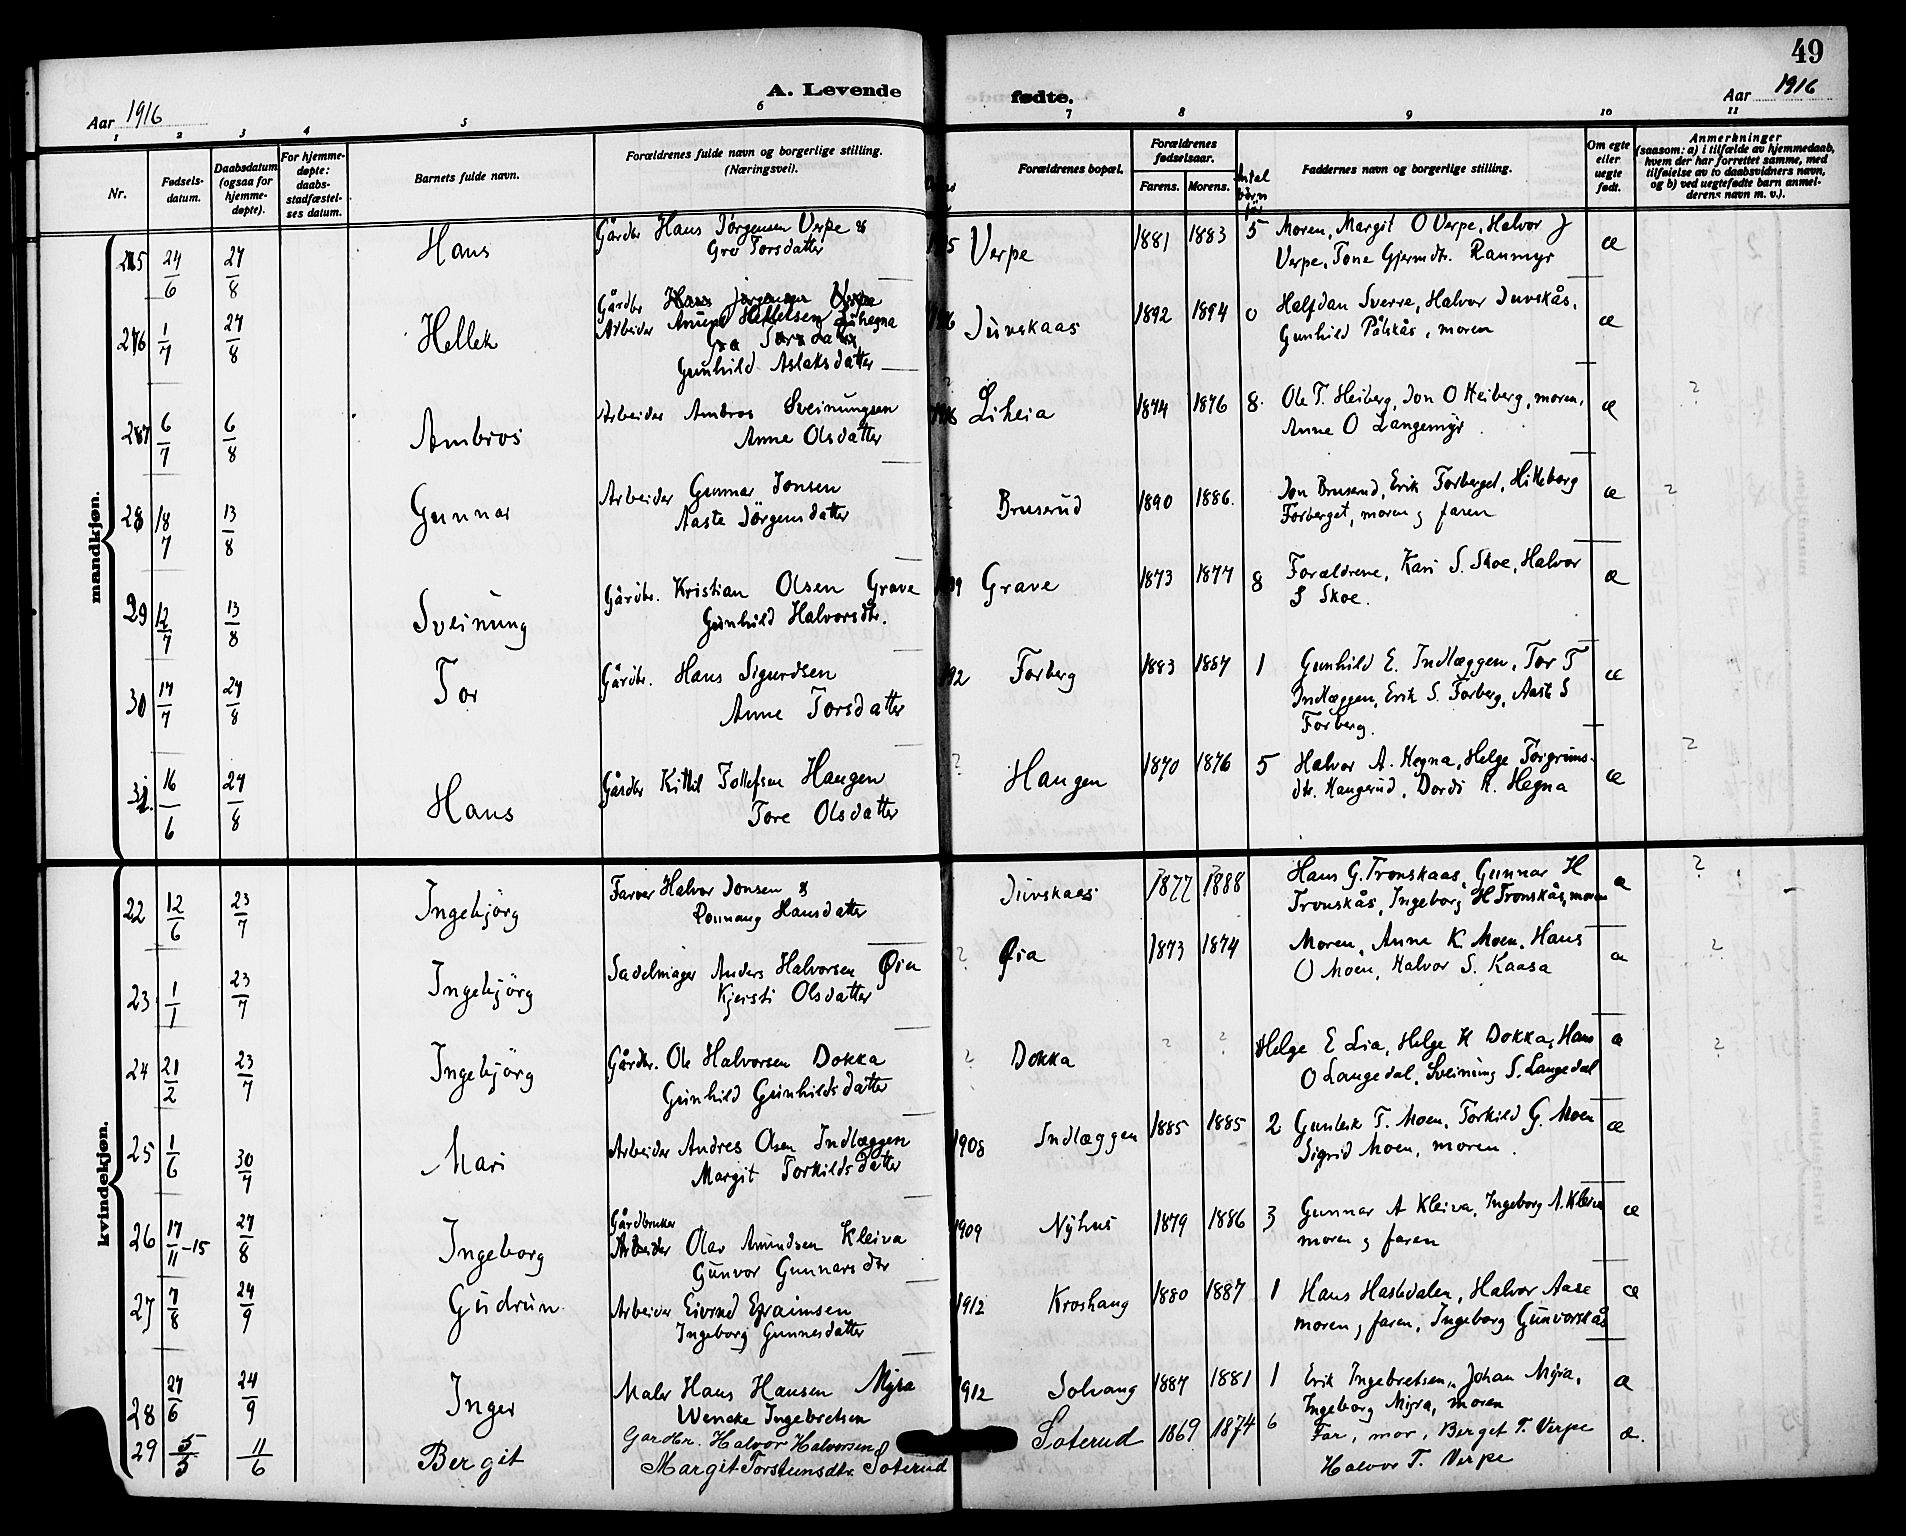 49
A. Levende fødte.
Aar 1916
Aar 1916
1 2 3 4 5 6 7 8 9 10 11
Nr.
Fødsels-
datum.
Daabsdatum
(ogsaa for
hjemme-
døpte).
For hjemme-
døpte:
daabs-
stadfæstel-
ses datum.
Barnets fulde navn.
Forældrenes fulde navn og borgerlige stilling.
(Næringsvei).
Forældrenes bopæl.
Forældrenes
fødselsaar.
Farens. Morens.
Antal
børn
før
Faddernes navn og borgerlige stilling.
Om egte
eller
uegte
født.
Anmerkninger
(saasom: a) i tilfælde av hjemmedaab,
hvem der har forrettet samme, med
tilføielse av to daabsvidners navn,
og b) ved uegtefødte barn anmel-
derens navn m. v.).
mandkjøn.
25 24/6 27/8 Hans Gårdbr Hans Jørgensen Verpe & Verpe 1881 1883 5 Moren, Margit O Verpe, Halvor J æ
Gro Torsdatter Verpe, Tone Gjermdtr. Raumyr
Gårdbr Hans Jørgensen Verpe
26 1/7 27/8 Hellek Arbeider Helleksen Juvskaas 1892 1894 0 Halfdan Sverre, Halvor Juvskås, æ
Gro Torsdatter Gunhild Pålskås, moren
Gunhild Aslaksdatter
27 6/7 6/8 Ambros Arbeider Ambros Sveinungsen Liheia 1874 1876 8 Ole T. Heiberg, Jon O Heiberg, moren, æ ?
Anne Olsdatter Anne O Langemyr
28 18/7 13/8 Gunnar Arbeider Gunnar Jonsen Bruserud 1890 1886. Jon Bruserud, Erik Forberget, æ ?
Aaste Jörgensdatter Forberget, moren og faren
29 12/7 13/8 Sveinung Gårdbr. Kristian Olsen Grave Grave 1873 1877 8 Forældrene, Kari S. Skoe, Halvor æ
Gunhild Halvorsdtr. S Skoe.
30 17/7 27/8 Tor Gårdbr. Hans Sigurdsen Forberg 1883 1887 1 Gunhild E. Indlæggen, Tor T æ
Anne Torsdatter Indlæggen, Erik S. Forberg, Aaste S
Forberg.
31. 16/6 27/8 Hans Gårdbr Kittil Tollefsen Haugen ? Haugen 1870 1876 5 Halvor A. Hegna, Helge Torgrims- æ ?
Tore Olsdatter dtr. Haugerud, Dordi H. Hegna
kvindekjøn.
22 12/6 23/7 Ingebjörg Farver Halvor Jonsen & Juvskaas 1877 1888 Hans G. Tronskaas, Gunnar H æ ?
Rønnaug Hansdatter Tronskås, Ingeborg H Tronskås, moren
23 1/1 23/7 Ingebjörg Sadelmager Anders Halvorsen Øia ? Øia 1873 1874 Moren, Anne K. Moen, Hans æ ?
Kjersti Olsdatter O Moen, Halvor S. Kaasa
24 21/2 23/7 Ingebjörg Gårdbr. Ole Halvorsen Dokka ? Dokka ? ? Helge E Lia, Helge H Dokka, Hans æ ?
Gunhild Gunhildsdatter O Langedal, Sveinung S. Langedal
25 1/6 30/7 Mari Arbeider Andres Olsen Indlæggen 1908 Indlæggen 1885 1885 2 Gunlek T. Moen, Torkild G. Moen æ
Margit Torkildsdatter Sigrid Moen, moren.
Gårdbruker
26 17/11-15 27/8 Ingeborg Arbeider Olav Amundsen Kleiva 1909 Nyhus 1879 1886 3 Gunnar A Kleiva, Ingeborg A. Kleiva æ
Gunvor Gunnarsdtr moren og faren
27 7/8 24/9 Gudrun Arbeider Eivind Efraimsen 1912 Kroshaug 1880 1887 1 Hans Hasledalen, Halvor Aase æ
Ingeborg Gunnesdatter moren, faren, Ingeborg Gunvorskås
28 27/6 24/9 Inger Maler Hans Hansen Myra 1912 Solvang 1887 1881 1 Erik Ingebretsen, Johan Myra, æ
Wencke Ingebretsen Ingeborg Myra, moren
29 5/5 11/6 Bergit Gardbr. Halvor Halvorsen Soterud 1869 1874 6 Far, mor, Berget T. Verpe æ.
Margit Torsteinsdtr. Soterud Halvor T. Verpe